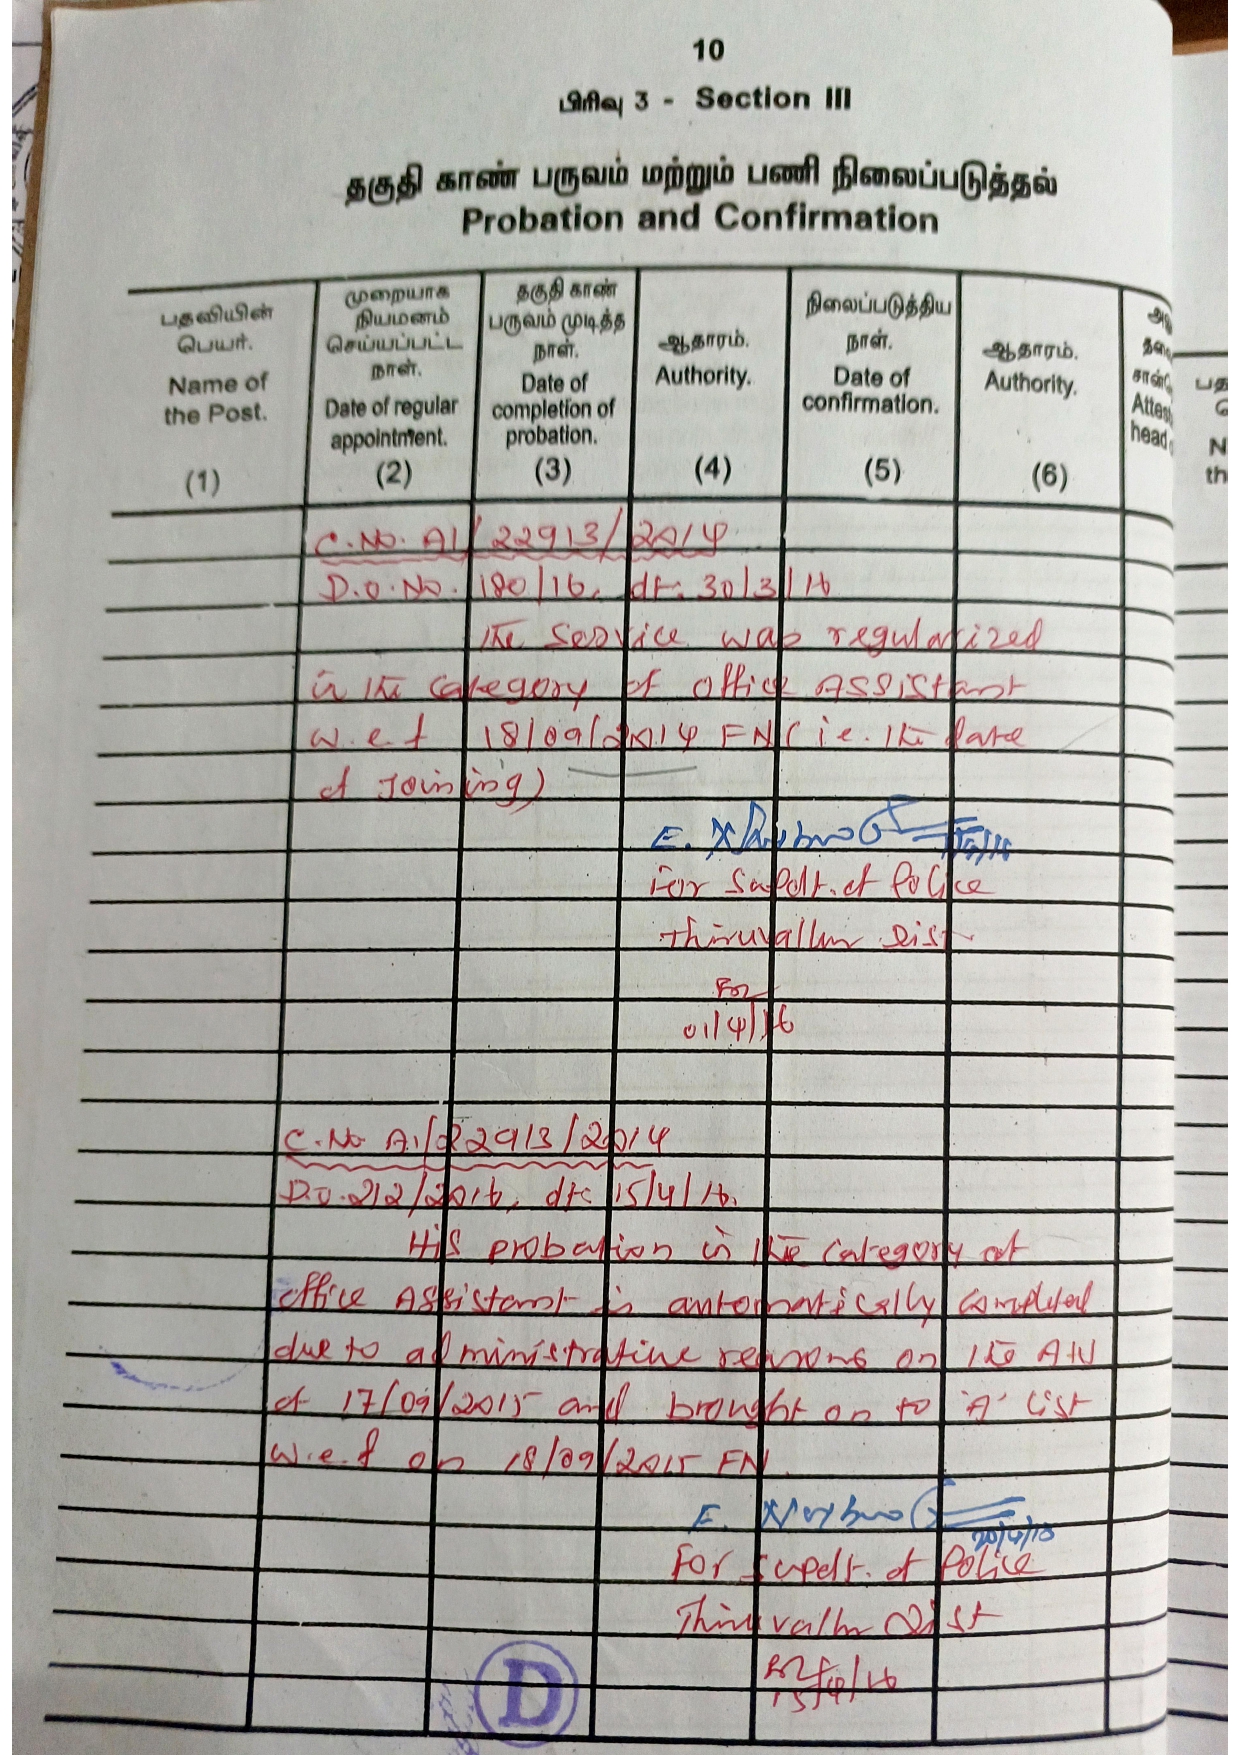 10
பிரிவு 3 - Section III
தகுதி காண் பருவம் மற்றும் பணி நிலைப்படுத்தல்
Probation and Confirmation
பதவியின்
பெயர்.
Name of
the Post.
(1)
முறையாக
நியமனம்
செய்யப்பட்ட
நாள்.
Date of regular
appointment.
(2)
தகுதி காண்
பருவம் முடித்த
நாள்.
Date of
completion of
probation.
(3)
ஆதாரம்.
Authority.
(4)
நிலைப்படுத்திய
நாள்.
Date of
confirmation.
(5)
ஆதாரம்.
Authority.
(6)
C.No. A1/22913/2014
D.O.No. 180/16, dt. 30/3/16
the Service was regularized
in the category of office Assistant
w.e.f 18/09/2014 FN (i.e. the date
of Joining)
For Supdt. of Police
Thiruvallur Dist
01/4/16
C.No A1/22913/2014
D.O. 212/2016, dt: 15/4/16.
His probation in the category of
office Assistant is automatically completed
due to administrative reasons on the AN
of 17/09/2015 and brought on to 'A' list
w.e.f on 18/09/2015 FN
20/4/16
For Supdt. of Police
Thiruvallur Dist
15/4/16
D